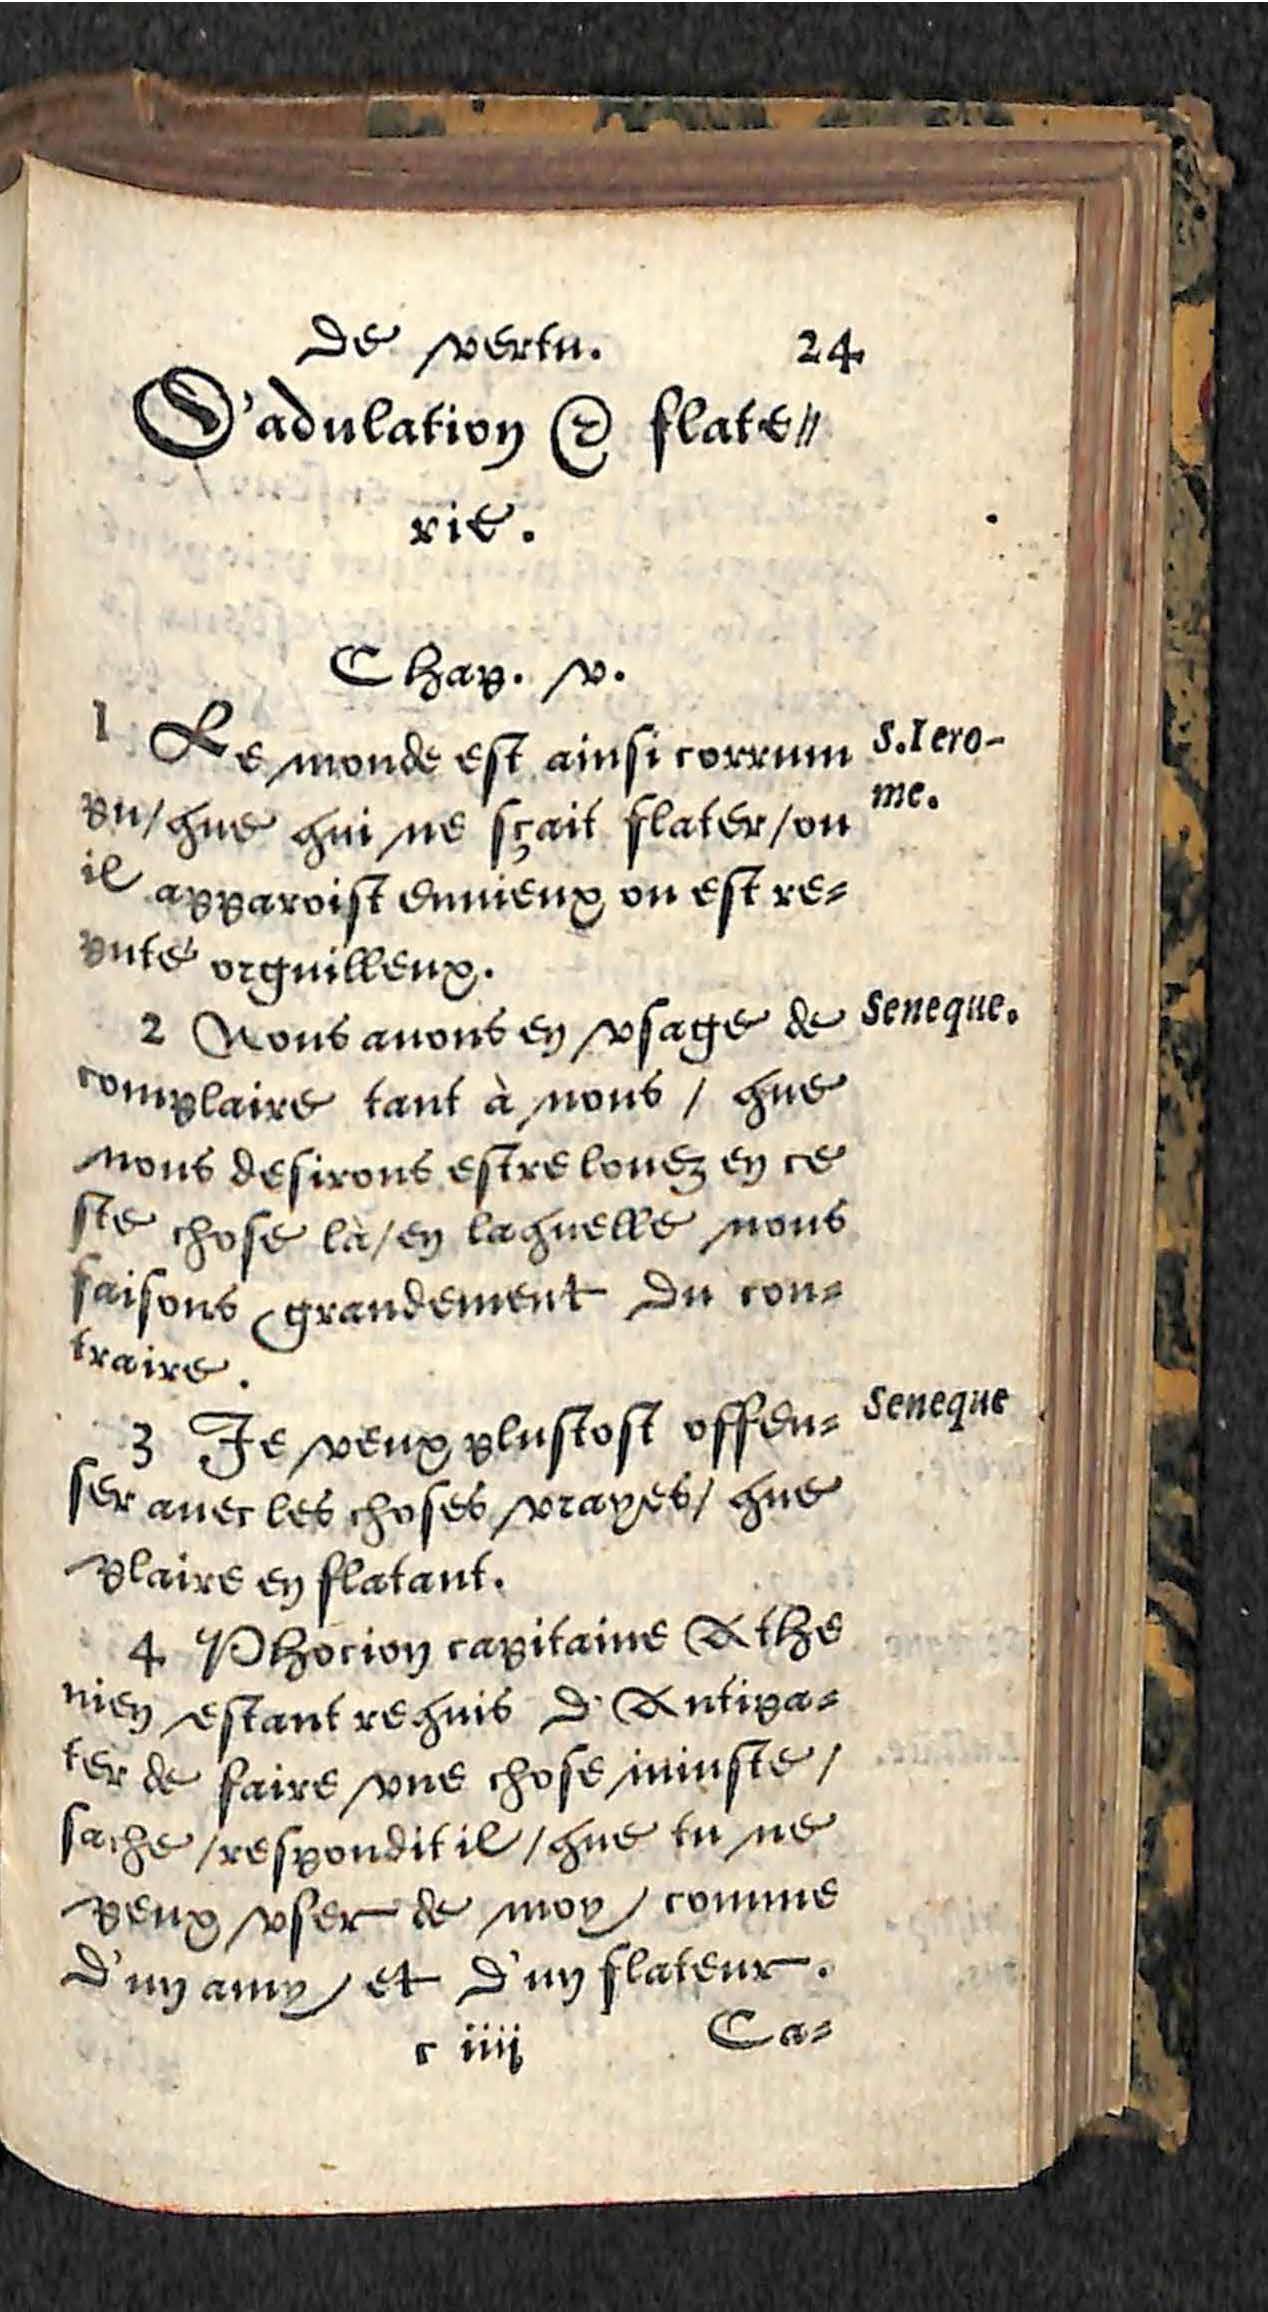 de vertu. 24
D'adulation & flate=
rie.
Chap. v.
1 Le monde est ainsi corrum S. Iero-
pu/que qui ne sçait flater/ou me.
il apparoist enuieux ou est re=
puté orguilleux.
2 Nous auons en vsage de Seneque.
complaire tant à nous / que
nous desirons estre louez en ce
ste chose là/en laquelle nous
faisons grandement du con=
traire.
3 Je veux plustost offen= Seneque
ser auec les choses vrayes/ que
plaire en flatant.
4 Phocion capitaine Athe
nien estant requis d'Antipa=
ter de faire vne chose iniuste/
sache/respondit il/que tu ne
peux vser de moy/ comme
d'un amy/ et d'un flateur.
c iiij Ca=